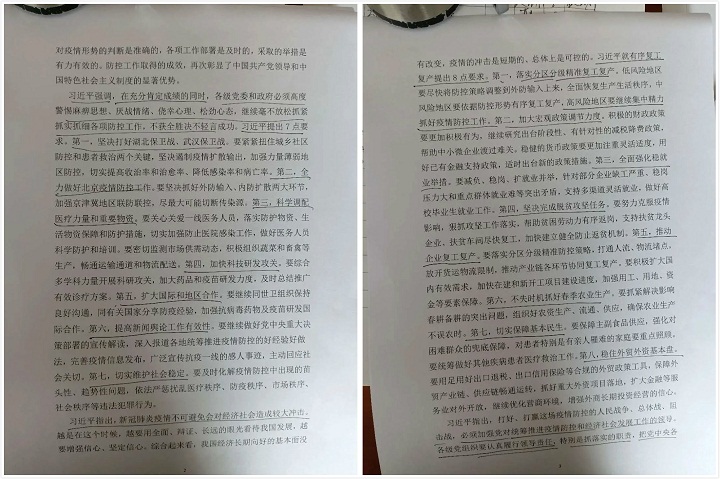 对疫情形势的判断是准确的，各项工作部署是及时的，采取的举措是
有力有效的。防控工作取得的成效，再次彰显了中国共产党领导和中
国特色社会主义制度的显著优势。
习近平强调，在充分肯定成绩的同时，各级党委和政府必须高度
警惕麻痹思想、厌战情绪、侥幸心理、松劲心态，继续毫不放松抓紧
抓实抓细各项防控工作，不获全胜决不轻言成功。习近平提出7点要
求。第一，坚决打好湖北保卫战、武汉保卫战。要紧紧扭住城乡社区
防控和患者救治两个关键，坚决遏制疫情扩散输出，加强力量薄弱地区
防控，切实提高收治率和治愈率、降低感染率和病亡率。第二，全
力做好北京疫情防控工作。要坚决抓好外防输入、内防扩散两大环节，
加强京津冀地区联防联控，尽最大可能切断传染源。第三，科学调配
医疗力量和重要物资。要关心关爱一线医务人员，落实防护物资、生
活物资保障和防护措施，切实加强防止医院感染工作，做好医务人员
科学防护和培训。要密切监测市场供需动态，积极组织蔬菜和畜禽等
生产，畅通运输通道和物流配送。第四，加快科技研发攻关。要综合
多学科力量开展科研攻关，加大药品和疫苗研发力度，及时总结推广
有效诊疗方案。第五，扩大国际和地区合作。要继续同世卫组织保持
良好沟通，同有关国家分享防疫经验，加强抗病毒药物及疫苗研发国
际合作。第六，提高新闻舆论工作有效性。要继续做好党中央重大决
策部署的宣传解读，深入报道各地统筹推进疫情防控的好经验好做
法，完善疫情信息发布，广泛宣传抗疫一线的感人事迹，主动回应社
会关切。第七，切实维护社会稳定。要及时化解疫情防控中出现的苗
头性、趋势性问题，依法严惩扰乱医疗秩序、防疫秩序、市场秩序、
社会秩序等违法犯罪行为。
习近平指出，新冠肺炎疫情不可避免会对经济社会造成较大冲击。
越是在这个时候，越要用全面、辩证、长远的眼光看待我国发展，越
要增强信心、坚定信心。综合起来看，我国经济长期向好的基本面没
2
有改变，疫情的冲击是短期的、总体上是可控的。习近平就有序复工
复产提出8点要求。第一，落实分区分级精准复工复产。低风险地区
要尽快将防控策略调整到外防输入上来，全面恢复生产生活秩序，中
风险地区要依据防控形势有序复工复产，高风险地区要继续集中精力
抓好疫情防控工作。第二，加大宏观政策调节力度。积极的财政政策
要更加积极有为，继续研究出台阶段性、有针对性的减税降费政策，
帮助中小微企业渡过难关。稳健的货币政策要更加注重灵活适度，用
好已有金融支持政策，适时出台新的政策措施。第三，全面强化稳就
业举措。要减负、稳岗、扩就业并举，针对部分企业缺工严重、稳岗
压力大和重点群体就业难等突出矛盾，支持多渠道灵活就业，做好高
校毕业生就业工作。第四，坚决完成脱贫攻坚任务。要努力克服疫情
影响，狠抓攻坚工作落实，帮助贫困劳动力有序返岗，支持扶贫龙头
企业、扶贫车间尽快复工，加快建立健全防止返贫机制。第五，推动
企业复工复产。要落实分区分级精准防控策略，打通人流、物流堵点，
放开货运物流限制，推动产业链各环节协同复工复产。要积极扩大国
内有效需求，加快在建和新开工项目建设进度，加强用工、用地、资
金等要素保障。第六，不失时机抓好春季农业生产。要抓紧解决影响
春耕备耕的突出问题，组织好农资生产、流通、供应，确保农业生产
不误农时。第七，切实保障基本民生。要保障主副食品供应，强化对
困难群众的兜底保障，对患者特别是有亲人罹难的家庭要重点照顾。
要统筹做好其他疾病患者医疗救治工作。第八，稳住外贸外资基本盘。
要用足用好出口退税、出口信用保险等合规的外贸政策工具，保障外
贸产业链、供应链畅通运转，抓好重大外资项目落地，扩大金融等服
务业对外开放，继续优化营商环境，增强外商长期投资经营的信心。
习近平指出，打好、打赢这场疫情防控的人民战争、总体战、阻
击战，必须加强党对统筹推进疫情防控和经济社会发展工作的领导。
各级党组织要认真履行领导责任，特别是抓落实的职责，把党中央各
3